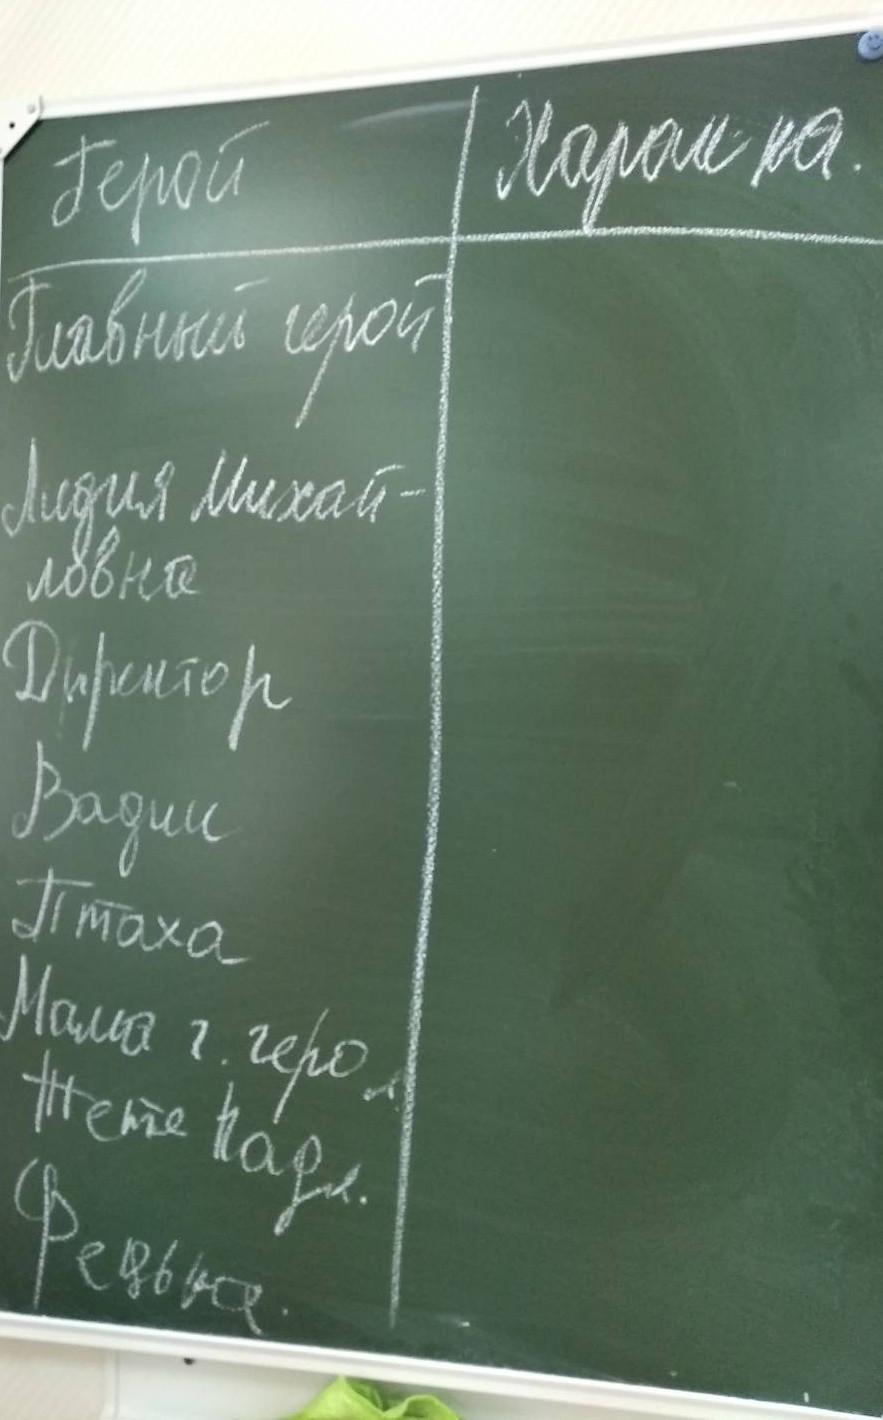 Герой Харак-ка.
Главный герой
Лидия Михай-
ловна
Директор
Вадик
Птаха
Мама г. героя
Тётя Надя.
Федька.